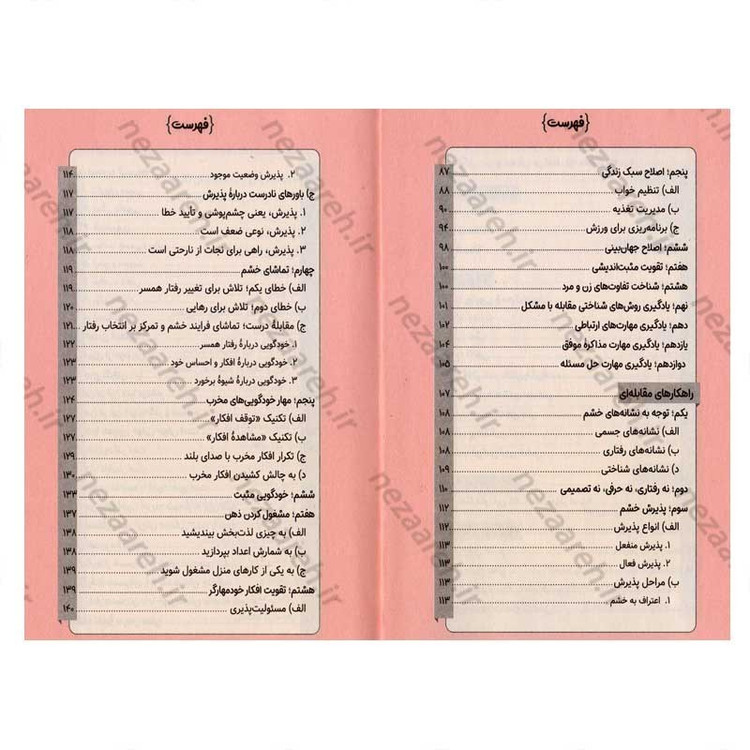 {فهرست}
پنجم؛ اصلاح سبک زندگی ۸۷
الف) تنظیم خواب ۸۸
ب) مدیریت تغذیه ۹۰
ج) برنامه‌ریزی برای ورزش ۹۴
ششم؛ اصلاح جهان‌بینی ۹۸
هفتم؛ تقویت مثبت‌اندیشی ۱۰۰
هشتم؛ شناخت تفاوت‌های زن و مرد ۱۰۰
نهم؛ یادگیری روش‌های شناختی مقابله با مشکل ۱۰۱
دهم؛ یادگیری مهارت‌های ارتباطی ۱۰۲
یازدهم؛ یادگیری مهارت مذاکرهٔ موفق ۱۰۴
دوازدهم؛ یادگیری مهارت حل مسئله ۱۰۵
راهکارهای مقابله‌ای ۱۰۷
یکم؛ توجه به نشانه‌های خشم ۱۰۸
الف) نشانه‌های جسمی ۱۰۸
ب) نشانه‌های رفتاری ۱۰۸
د) نشانه‌های شناختی ۱۰۹
دوم؛ نه رفتاری، نه حرفی، نه تصمیمی ۱۱۰
سوم؛ پذیرش خشم ۱۱۲
الف) انواع پذیرش ۱۱۲
۱. پذیرش منفعل ۱۱۲
۲. پذیرش فعال ۱۱۳
ب) مراحل پذیرش ۱۱۳
۱. اعتراف به خشم ۱۱۳
{فهرست}
۲. پذیرش وضعیت موجود ۱۱۴
ج) باورهای نادرست دربارهٔ پذیرش ۱۱۷
۱. پذیرش، یعنی چشم‌پوشی و تأیید خطا ۱۱۷
۲. پذیرش، نوعی ضعف است ۱۱۸
۳. پذیرش، راهی برای نجات از نارحتی است ۱۱۸
چهارم؛ تماشای خشم ۱۱۹
الف) خطای یکم؛ تلاش برای تغییر رفتار همسر ۱۱۹
ب) خطای دوم؛ تلاش برای رهایی ۱۲۰
ج) مقابلهٔ درست؛ تماشای فرایند خشم و تمرکز بر انتخاب رفتار ۱۲۱
۱. خودگویی دربارهٔ رفتار همسر ۱۲۲
۲. خودگویی دربارهٔ افکار و احساس خود ۱۲۳
۳. خودگویی دربارهٔ شیوهٔ برخورد ۱۲۳
پنجم؛ مهار خودگویی‌های مخرب ۱۲۴
الف) تکنیک «توقف افکار» ۱۲۷
ب) تکنیک «مشاهدهٔ افکار» ۱۲۷
ج) تکرار افکار مخرب با صدای بلند ۱۲۹
د) به چالش کشیدن افکار مخرب ۱۳۰
ششم؛ خودگویی مثبت ۱۳۳
هفتم؛ مشغول کردن ذهن ۱۳۷
الف) به چیزی لذت‌بخش بیندیشید ۱۳۸
ب) به شمارش اعداد بپردازید ۱۳۸
ج) به یکی از کارهای منزل مشغول شوید ۱۳۹
هشتم؛ تقویت افکار خودمهارگر ۱۳۹
الف) مسئولیت‌پذیری ۱۴۰
nezaareh.ir